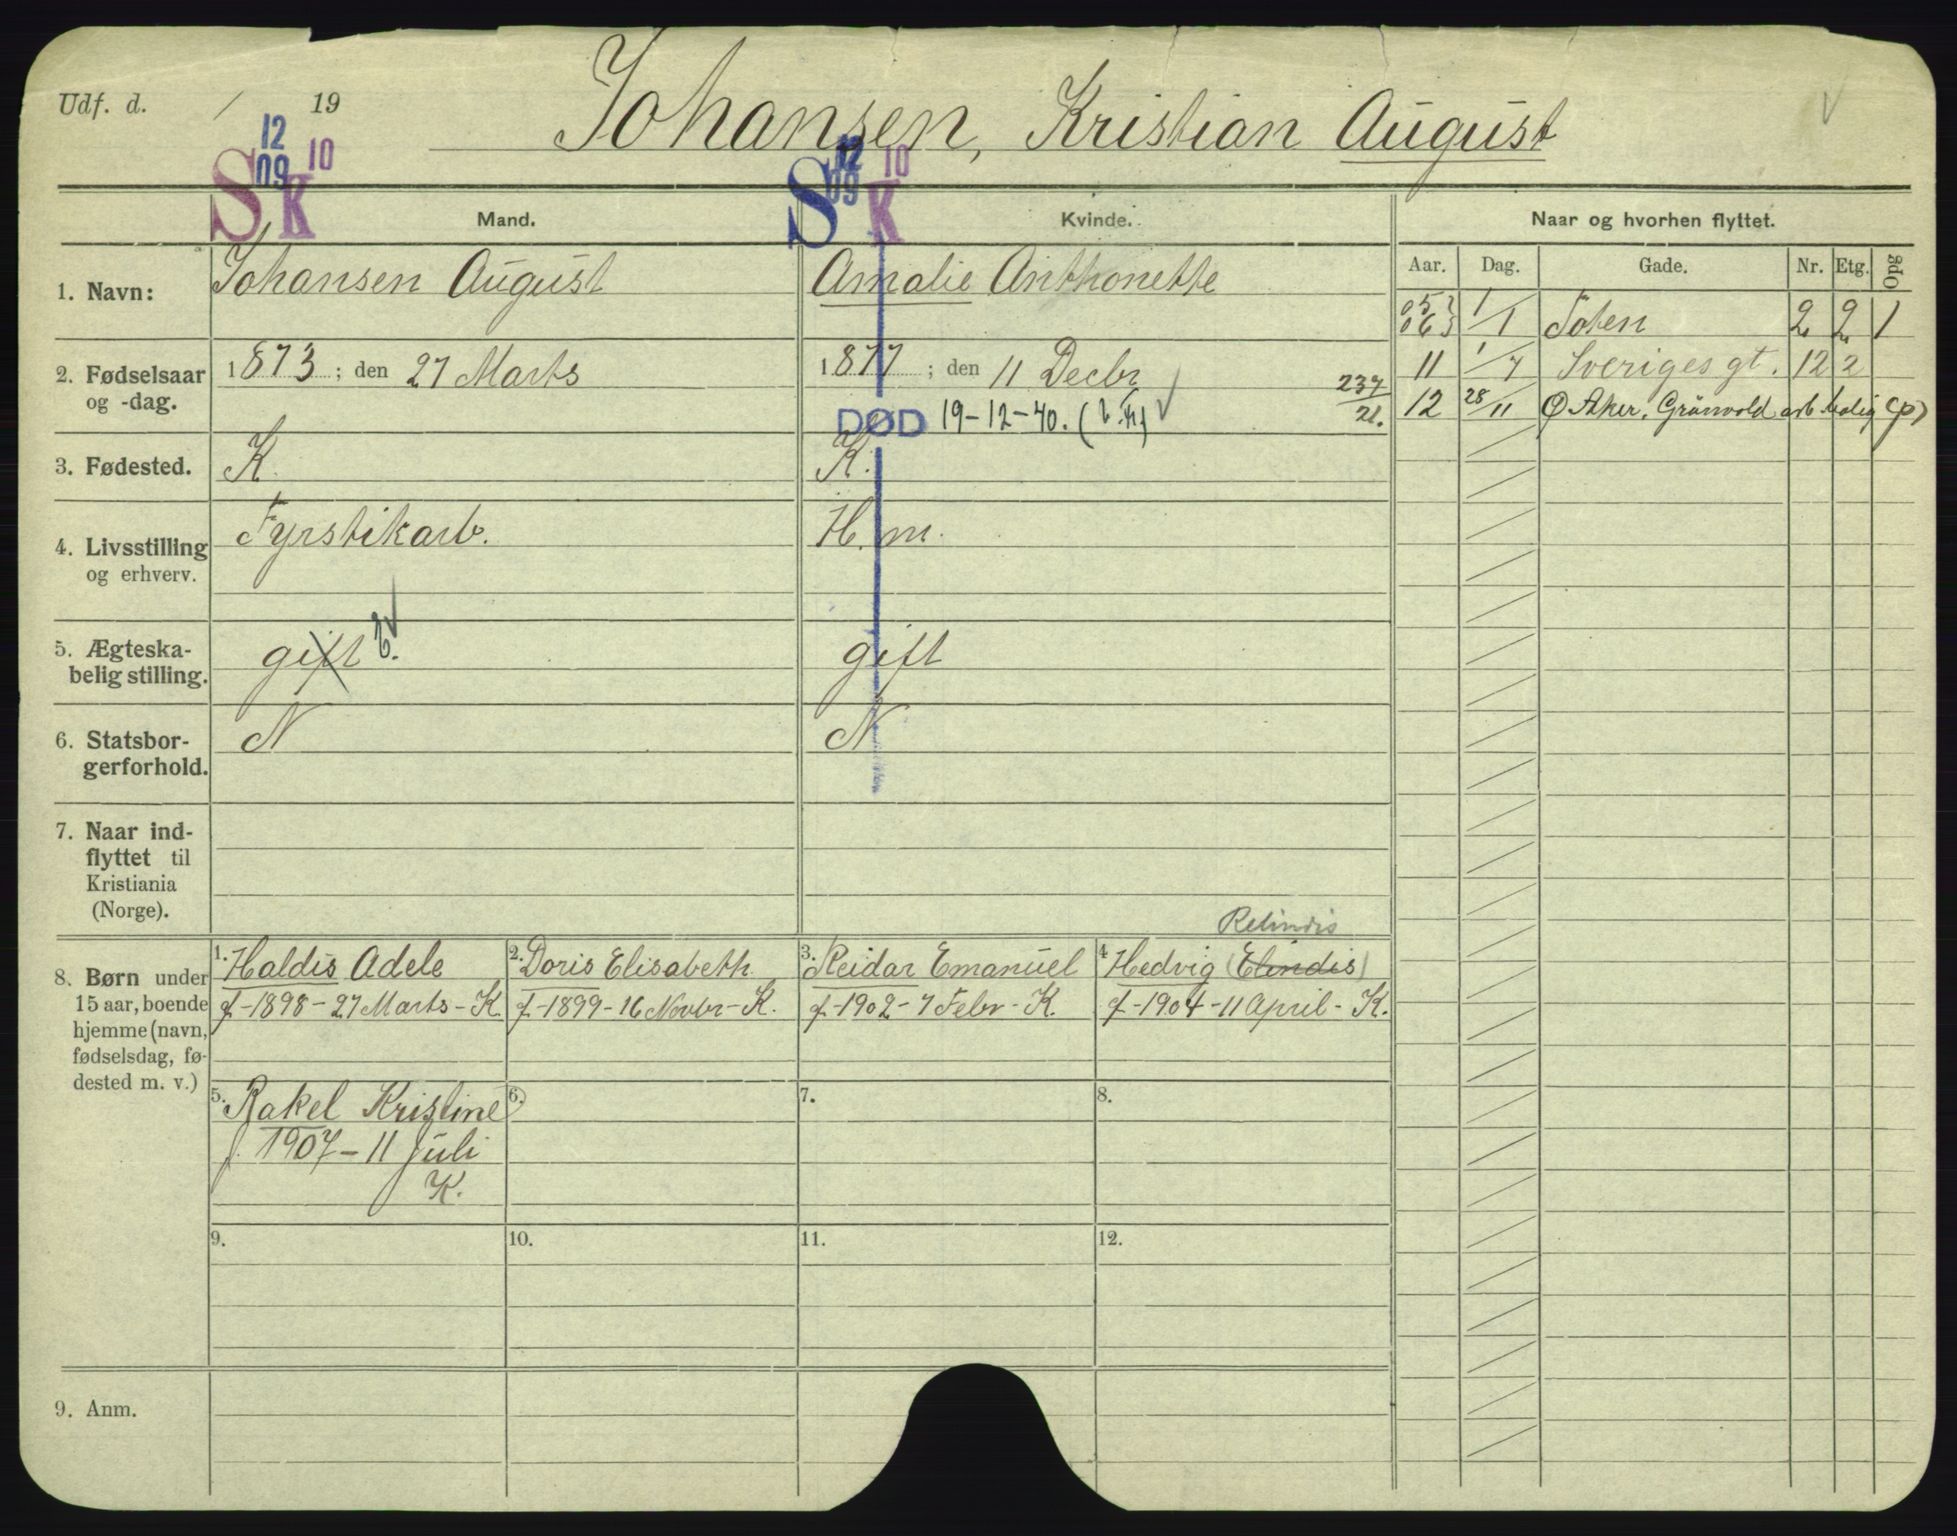 Udf. d. / 19
Johansen, Kristian August
12
09
S K 10
12
09
S K 10
Mand.
Kvinde.
Naar og hvorhen flyttet.
Aar. Dag. Gade. Nr. Etg. Opg
1. Navn:
Johansen August
Amalie Anthonette
05 06 } 1/1 Töien 2 2 1
11 1/7 Sveriges gt. 12 2
12 28/11 Ø Aker, Grönvold arb. bolig (p)
2. Fødselsaar
og -dag.
1873; den 27 Marts
1877; den 11 Decbr
237
21.
DØD 19-12-40.
3. Fødested.
K.
K.
4. Livsstilling
og erhverv.
Fyrstikarb.
H. m.
5. Ægteska-
belig stilling.
gift E.
gift
6. Statsbor-
gerforhold.
N
N
7. Naar ind-
flyttet til
Kristiania
(Norge).
8. Børn under
15 aar, boende
hjemme (navn,
fødselsdag, fø-
dested m. v.)
1. Haldis Adele
f-1898-27 Marts-K.
2. Doris Elisabeth
f-1899-16 Novbr-K.
3. Reidar Emanuel
f-1902-7 Febr-K.
Relindis
4 Hedvig (Elindis)
f-1904-11 April-K.
5. Rakel Kristine
f. 1907-11 Juli
K.
6.
7.
8.
9.
10.
11.
12.
9. Anm.